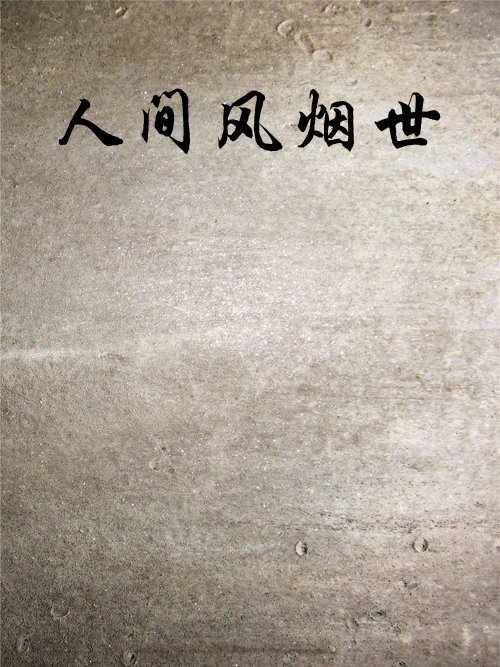 人间风烟世